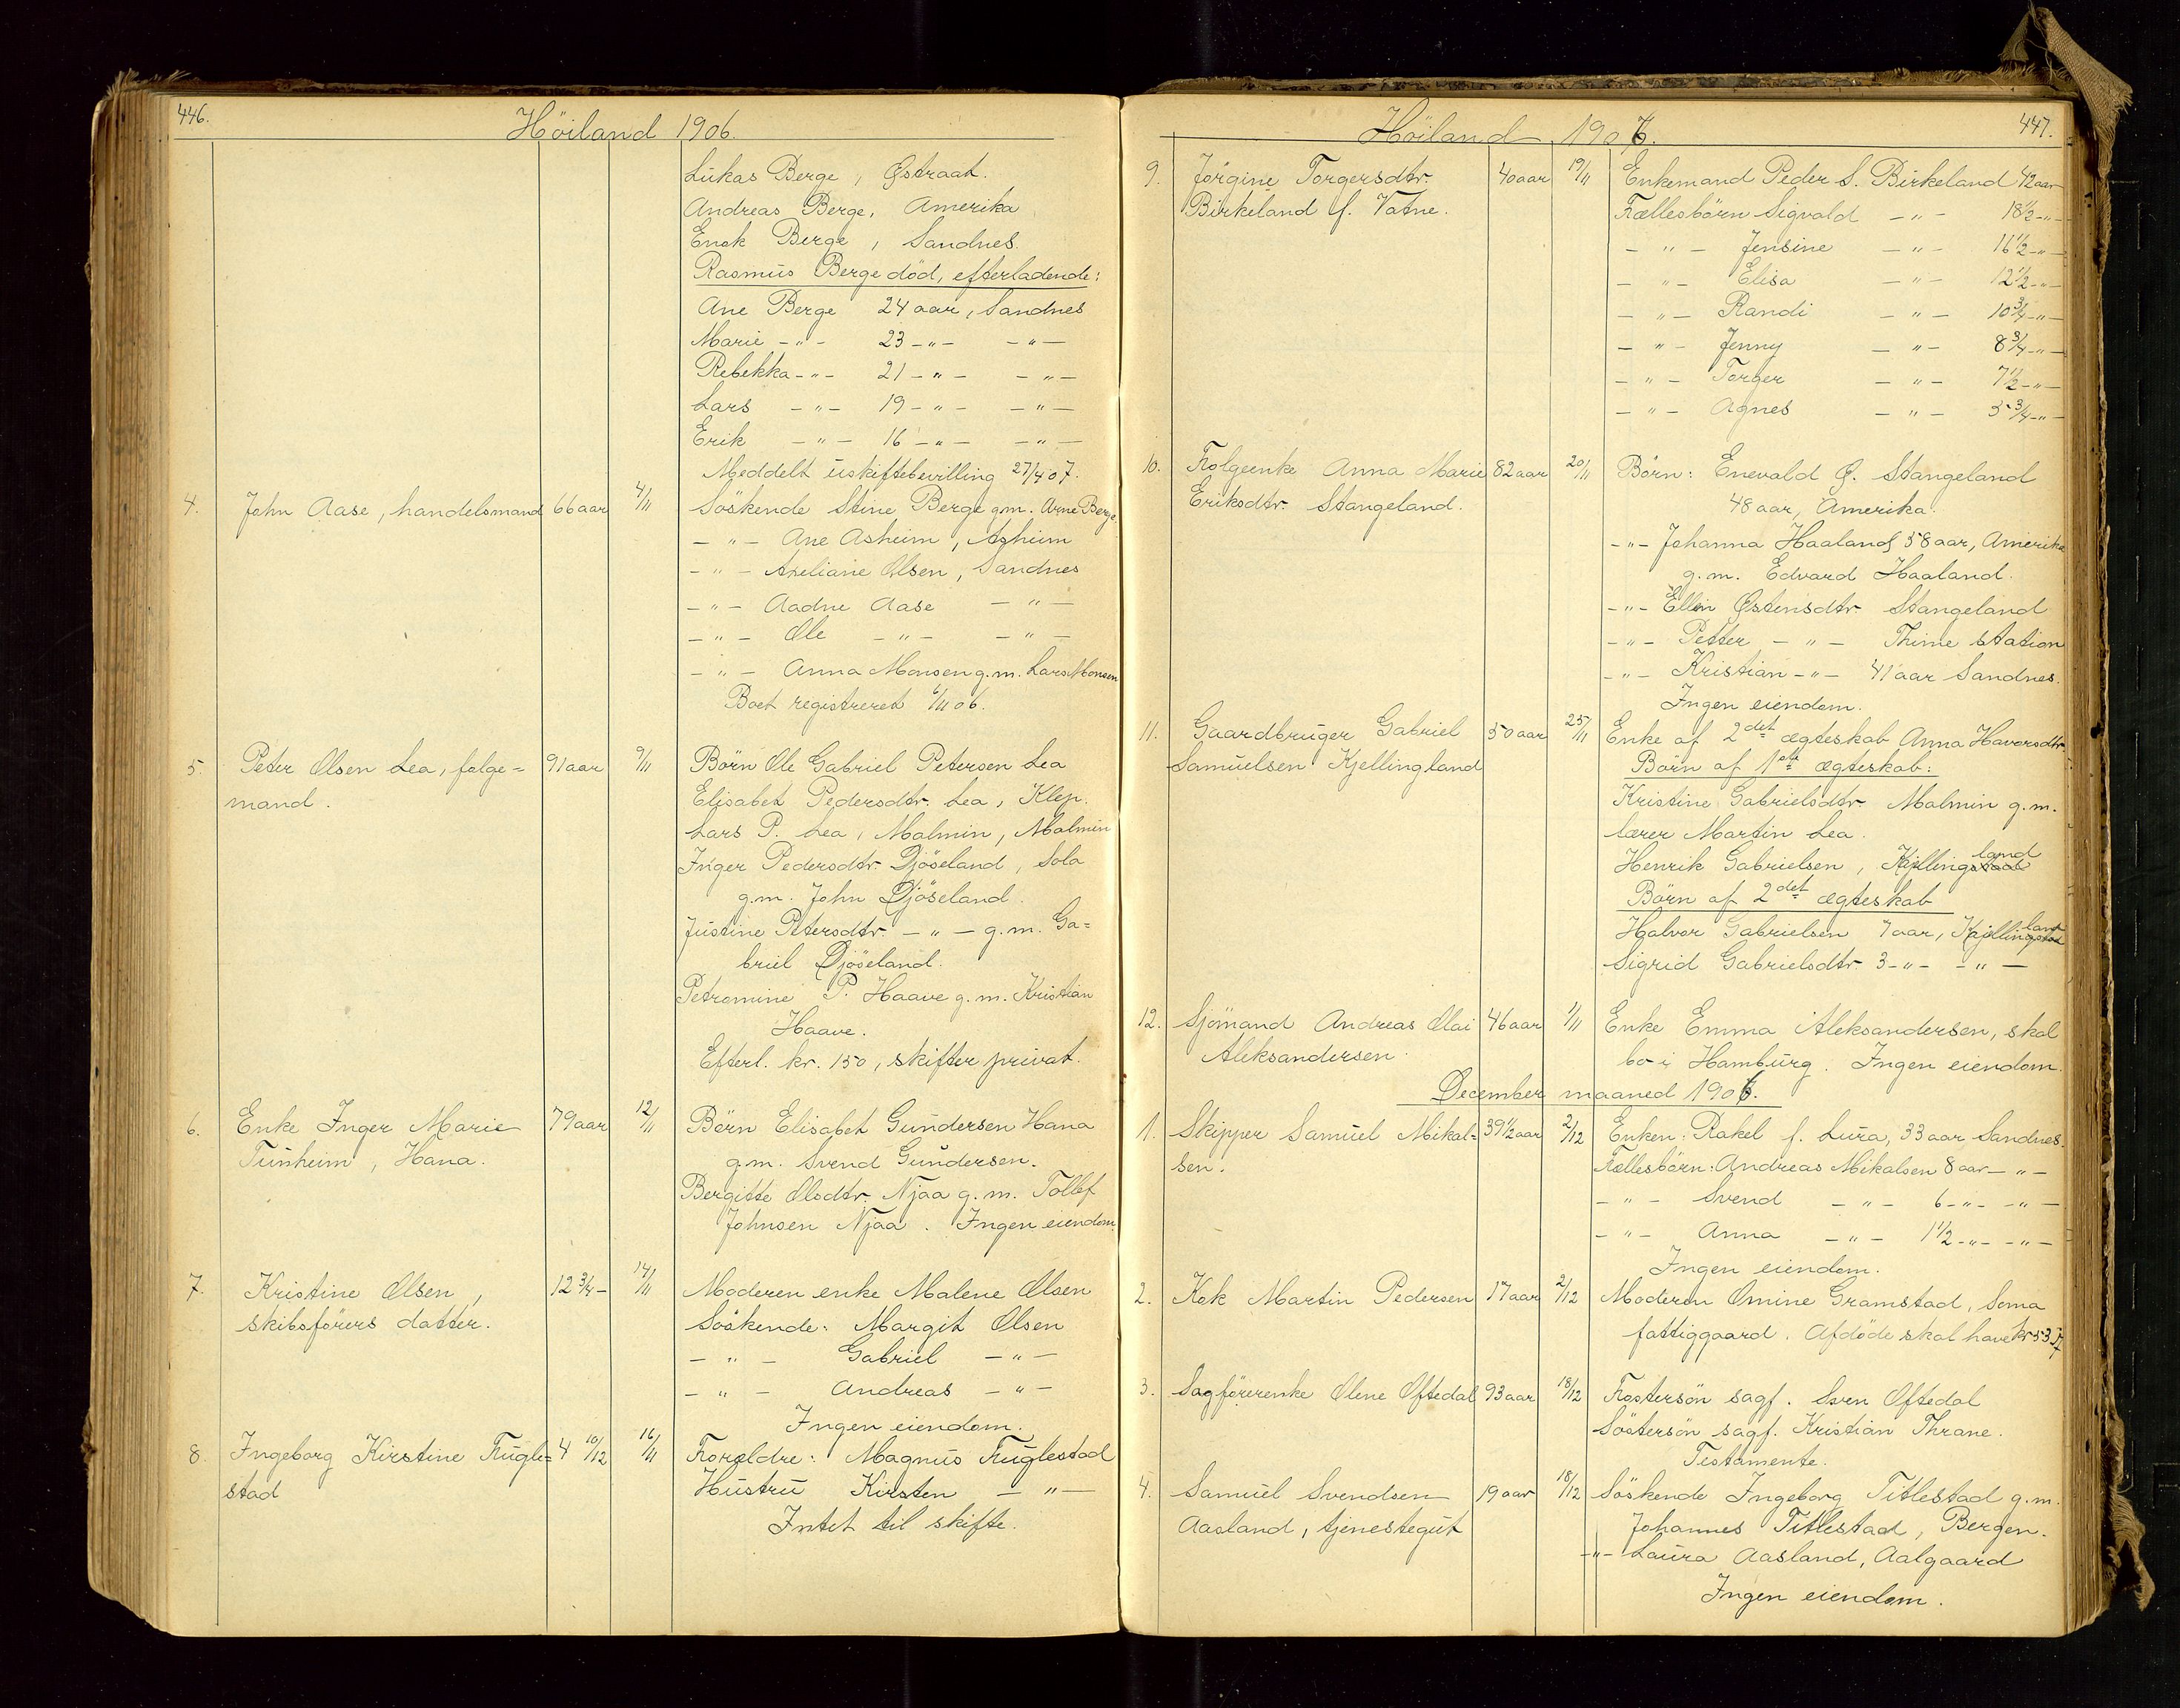 446.
Höiland 1906.
Lukas Berge, Østraat.
Andreas Berge, Amerika
Enok Berge, Sandnes.
Rasmus Berge död, efterladende:
Ane Berge 24 aar, Sandnes
Marie -"- 23 -"- -"-
Rebekka -"- 21 -"- -"-
Lars -"- 19 -"- -"-
Erik -"- 16 -"- -"-
Meddelt uskiftebevilling 27/4 07.
4. John Aase, handelsmand 66 aar 4/11 Söskende Stine Berge g.m. Arne Berge
-"- Ane Asheim, Asheim
-"- Axeliane Olsen, Sandnes
-"- Aadne Aase -"-
-"- Ole -"- -"-
-"- Anna Monsen g.m. Lars Monsen
Boet registreret 6/11 06.
5. Peter Olsen Lea, følge- 91 aar 9/11 Börn Ole Gabriel Petersen Lea
mand. Elisabet Pedersdtr. Lea, Klep.
Lars P. Lea, Malmin, Malmin
Inger Pedersdtr. Djöseland, Sola
g.m. John Djöseland.
Justine Petersdtr. -"- g.m. Ga=
briel Djöseland.
Petromine P. Haave g.m. Kristian
Haave.
Efterl. kr. 150, skifter privat.
6. Enke Inger Marie 79 aar 12/11 Börn Elisabet Gundersen Hana
Tunheim, Hana. g.m. Svend Gundersen.
Bergitte Olsdtr. Njaa g.m. Tollef
Johnsen Njaa. Ingen eiendom.
7. Kristine Olsen, 12 3/4 - 14/11 Moderen enke Malene Olsen
skibsförers datter. Söskende: Margit Olsen
-"- Gabriel -"-
-"- Andreas -"-
Ingen eiendom.
8. Ingeborg Kirstine Fugle= 4 10/12 16/11 Forældre: Magnus Fuglestad
stad Hustru Kirsten -"-
Intet til skifte.
447.
Höiland 1906.
9. Jörgine Torgersdtr. 40 aar 19/11 Enkemand Peder S. Birkeland 42 aar
Birkeland f. Vatne. Fællesbörn Sigvald -"- 18 1/2 -"-
-"- Jensine -"- 16 1/2 -"-
-"- Elisa -"- 12 1/2 -"-
-"- Randi -"- 10 3/4 -"-
-"- Jenny -"- 8 3/4 -"-
-"- Torger -"- 7 1/2 -"-
-"- Agnes -"- 5 3/4 -"-
10. Følgeenke Anna Marie 82 aar 20/11 Börn: Enevald Ø. Stangeland
Eriksdtr. Stangeland. 48 aar, Amerika.
-"- Johanna Haaland 58 aar, Amerika
g.m. Edvard Haaland.
-"- Ellen Østensdtr. Stangeland
-"- Petter -"- Thime station
-"- Kristian -"- 41 aar Sandnes.
Ingen eiendom.
11. Gaardbruger Gabriel 50 aar 25/11 Enke af 2det ægteskab Anna Haversdtr.
Samuelsen Kjellingland Börn af 1ste ægteskab:
Kristine Gabrielsdtr. Malmin g.m.
lærer Martin Lea.
Henrik Gabrielsen, Kjellingland
Börn af 2det ægteskab
Halvor Gabrielsen 7 aar, Kjellingland
Sigrid Gabrielsdtr. 3 -"- -"-
12. Sjömand Andreas Olai 46 aar 1/11 Enke Emma Aleksandersen, skal
Aleksandersen. bo i Hamburg. Ingen eiendom.
December maaned 1906.
1. Skipper Samuel Mikal= 39 1/2 aar 2/12 Enken: Rakel f. Lura, 33 aar Sandnes.
sen. Fællesbörn: Andreas Mikalsen 8 aar -"-
-"- Svend -"- 6 -"- -"-
-"- Anna -"- 1 1/2 -"- -"-
Ingen eiendom.
2. Kok Martin Pedersen 17 aar 2/12 Moderen Omine Gramstad, Soma
fattiggaard. Afdöde skal have kr 53
3. Sagförerenke Olene Oftedal 93 aar 18/12 Fostersön sagf. Sven Oftedal
Söstersön sagf. Kristian Thrane.
Testamente.
4. Samuel Svendsen 19 aar 18/12 Söskende Ingeborg Titlestad g.m.
Aasland, tjenestegut Johannes Titlestad, Bergen.
-"- Laura Aasland, Aalgaard
Ingen eiendom.